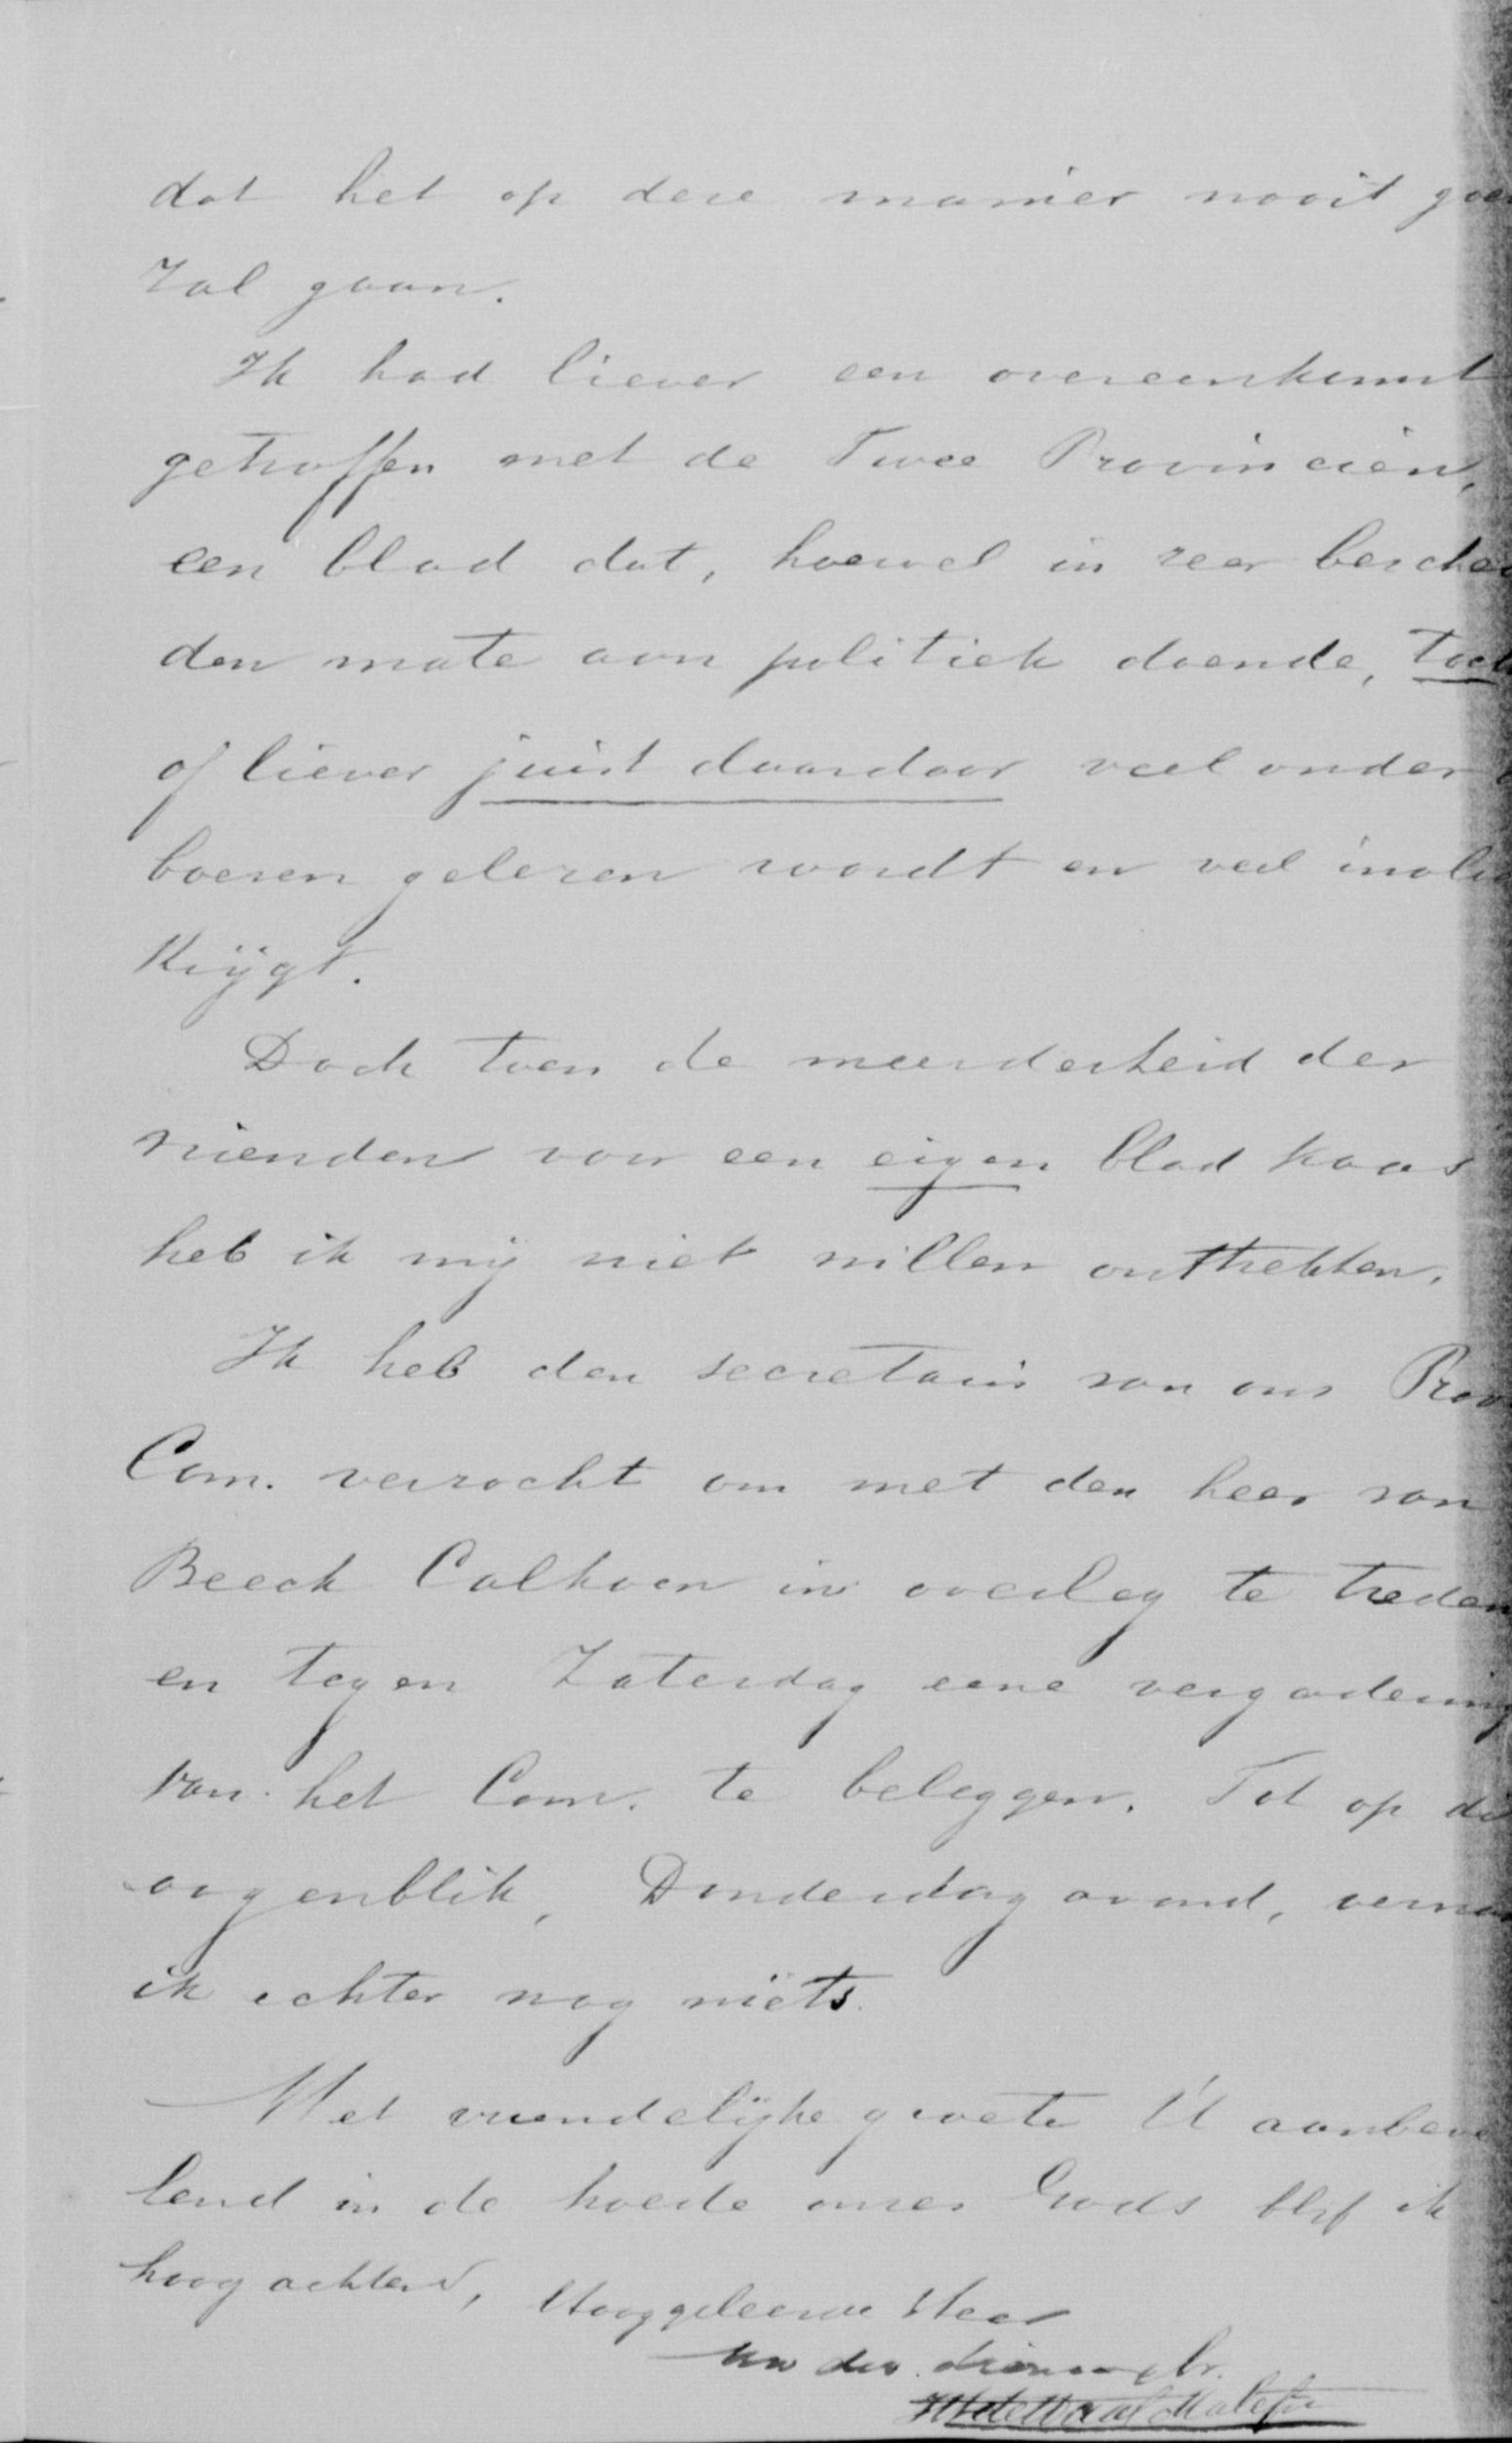 dat het op deze manier nooit goed
zal gaan.
Ik had liever een overeenkomst
getroffen met de Twee Provinciën,
een blad dat, hoewel in zeer beschei
den mate aan politiek doende, toch
of liever juist daardoor veel onder
boeren gelezen wordt en veel invloed
Krijgt.
Doch toen de meerderheid der
vrienden voor een eigen blad koos
heb ik mij niet willen onttrekken.
Ik heb den secretaris van ons Prov
Com. verzocht om met den heer van
Beeck Calkoen in overleg te treden
en tegen Zaterdag eene vergadering
van het Com. te beleggen. Tot op dit
oogenblik, Donderdag avond, vernam
ik echter nog niets.
Met vriendelijke groete U aanbeve
lend in de hoede onzes Gods blijf ik
hoogachtend, Hooggeleerde Heer
Uw dw. dienaar